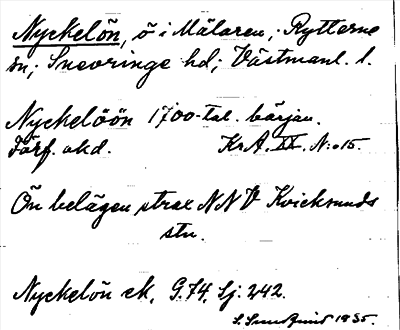 Nyckelön, ö i Mälaren, Rytterne
sn; Snevringe hd; Västmanl. l.
Nyckelöön 1700-tal. början.
Färf. okd. KrA. XX. N:o 15.
Ön belägen strax NNV Kvicksunds
stn.
Nyckelön ek. G.74, Sj: 242.
1935.